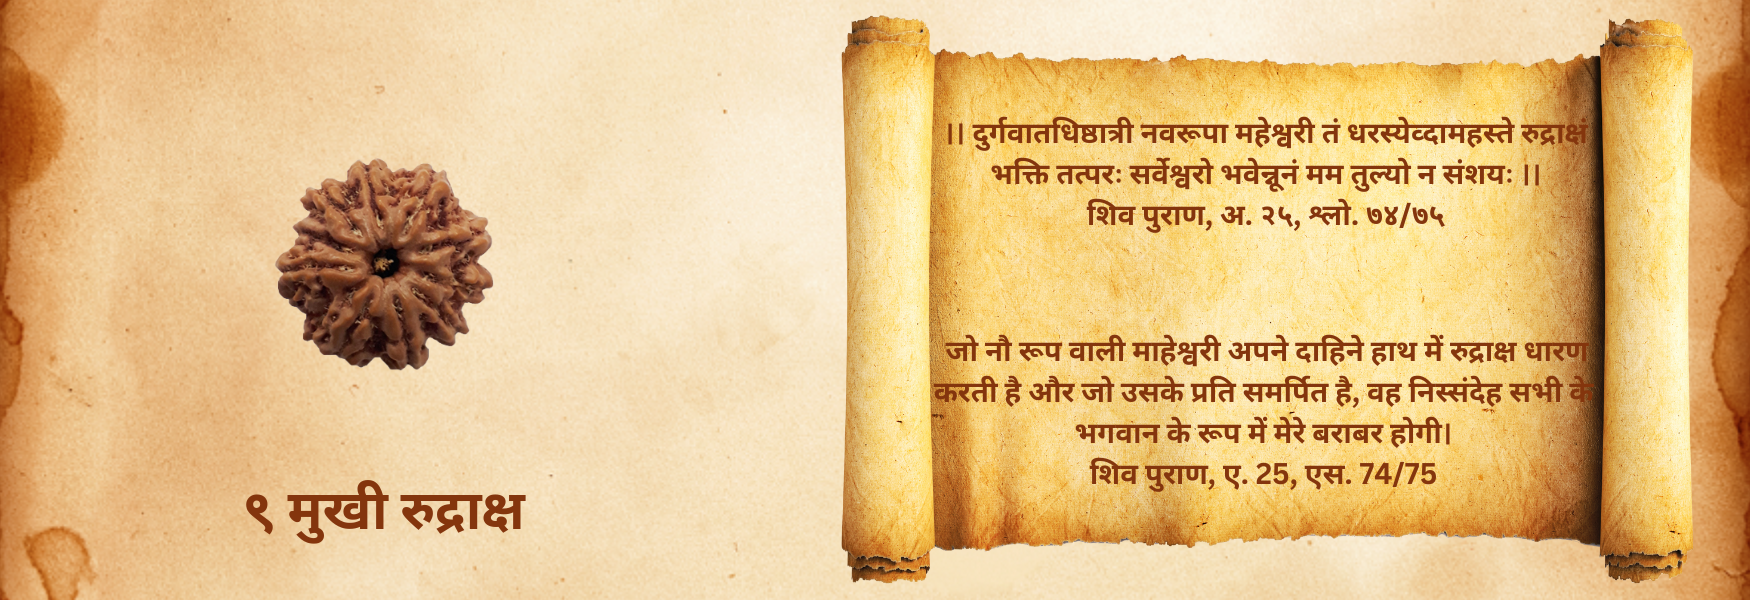 ९ मुखी रुद्राक्ष
।। दुर्गवातधिष्ठात्री नवरूपा महेश्वरी तं धरस्येव्दामहस्ते रुद्राक्षं
भक्ति तत्परः सर्वेश्वरो भवेन्नूनं मम तुल्यो न संशयः ।।
शिव पुराण, अ. २५, श्लो. ७४/७५
जो नौ रूप वाली माहेश्वरी अपने दाहिने हाथ में रुद्राक्ष धारण
करती है और जो उसके प्रति समर्पित है, वह निस्संदेह सभी के
भगवान के रूप में मेरे बराबर होगी।
शिव पुराण, ए. 25, एस. 74/75